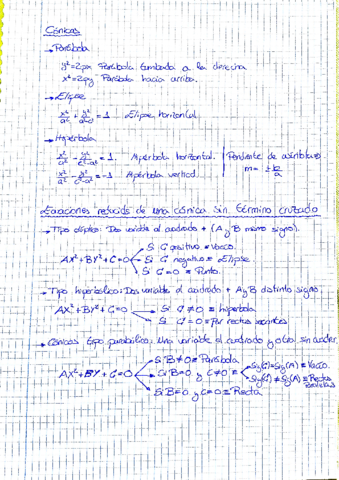 Cónicas
→ Parábola
y²=2px Parábola tumbada a la derecha
x²=2py Parábola hacia arriba.
→ Elipse
x²/a² + y²/a²-c² = 1 Elipse horizontal
→ Hipérbola
x²/a² - y²/c²-a² = 1. Hipérbola horizontal. | Pendiente de asíntotas
m = ± b/a
x²/a² - y²/c²-a² = -1. Hipérbola vertical.
Ecuaciones reducidas de una cónica sin término cruzado
→ Tipo elíptico: Dos variable al cuadrado + (A y B mismo signo).
AX²+BY²+C=0
Si C positivo ≡ Vacío.
Si C negativo ≡ Elipse
Si C=0 ≡ Punto.
→ Tipo hiperbólico: Dos variable al cuadrado + A y B distinto signo.
AX²+BY²+C=0
Si C≠0 ≡ hipérbola
Si C=0 ≡ Par rectas secantes
→ Cónicas tipo parabólico: Una variable al cuadrado y otra sin cuadrar.
AX²+BY+C=0
Si B≠0 ≡ Parábola
Si B=0 y C≠0 ≡
Sig(C)=Sig(A) ≡ Vacío.
Sig(C)≠Sig(A) ≡ Rectas paralelas
Si B=0 y C=0 ≡ Recta